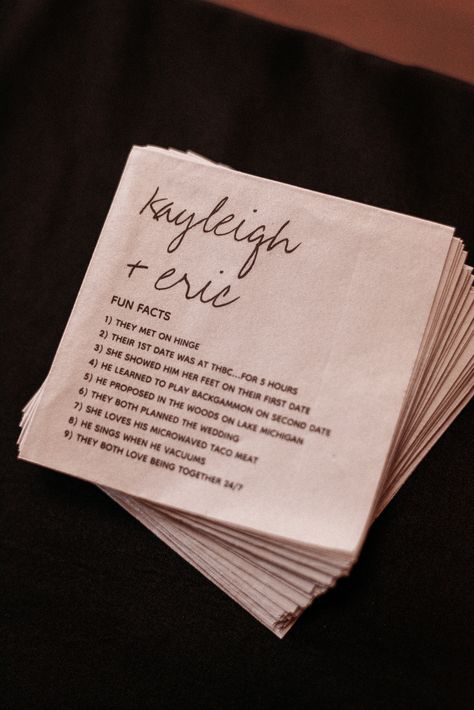 kayleigh
+ eric
FUN FACTS
1) THEY MET ON HINGE
2) THEIR 1ST DATE WAS AT THBC...FOR 5 HOURS
3) SHE SHOWED HIM HER FEET ON THEIR FIRST DATE
4) HE LEARNED TO PLAY BACKGAMMON ON SECOND DATE
5) HE PROPOSED IN THE WOODS ON LAKE MICHIGAN
6) THEY BOTH PLANNED THE WEDDING
7) SHE LOVES HIS MICROWAVED TACO MEAT
8) HE SINGS WHEN HE VACUUMS
9) THEY BOTH LOVE BEING TOGETHER 24/7